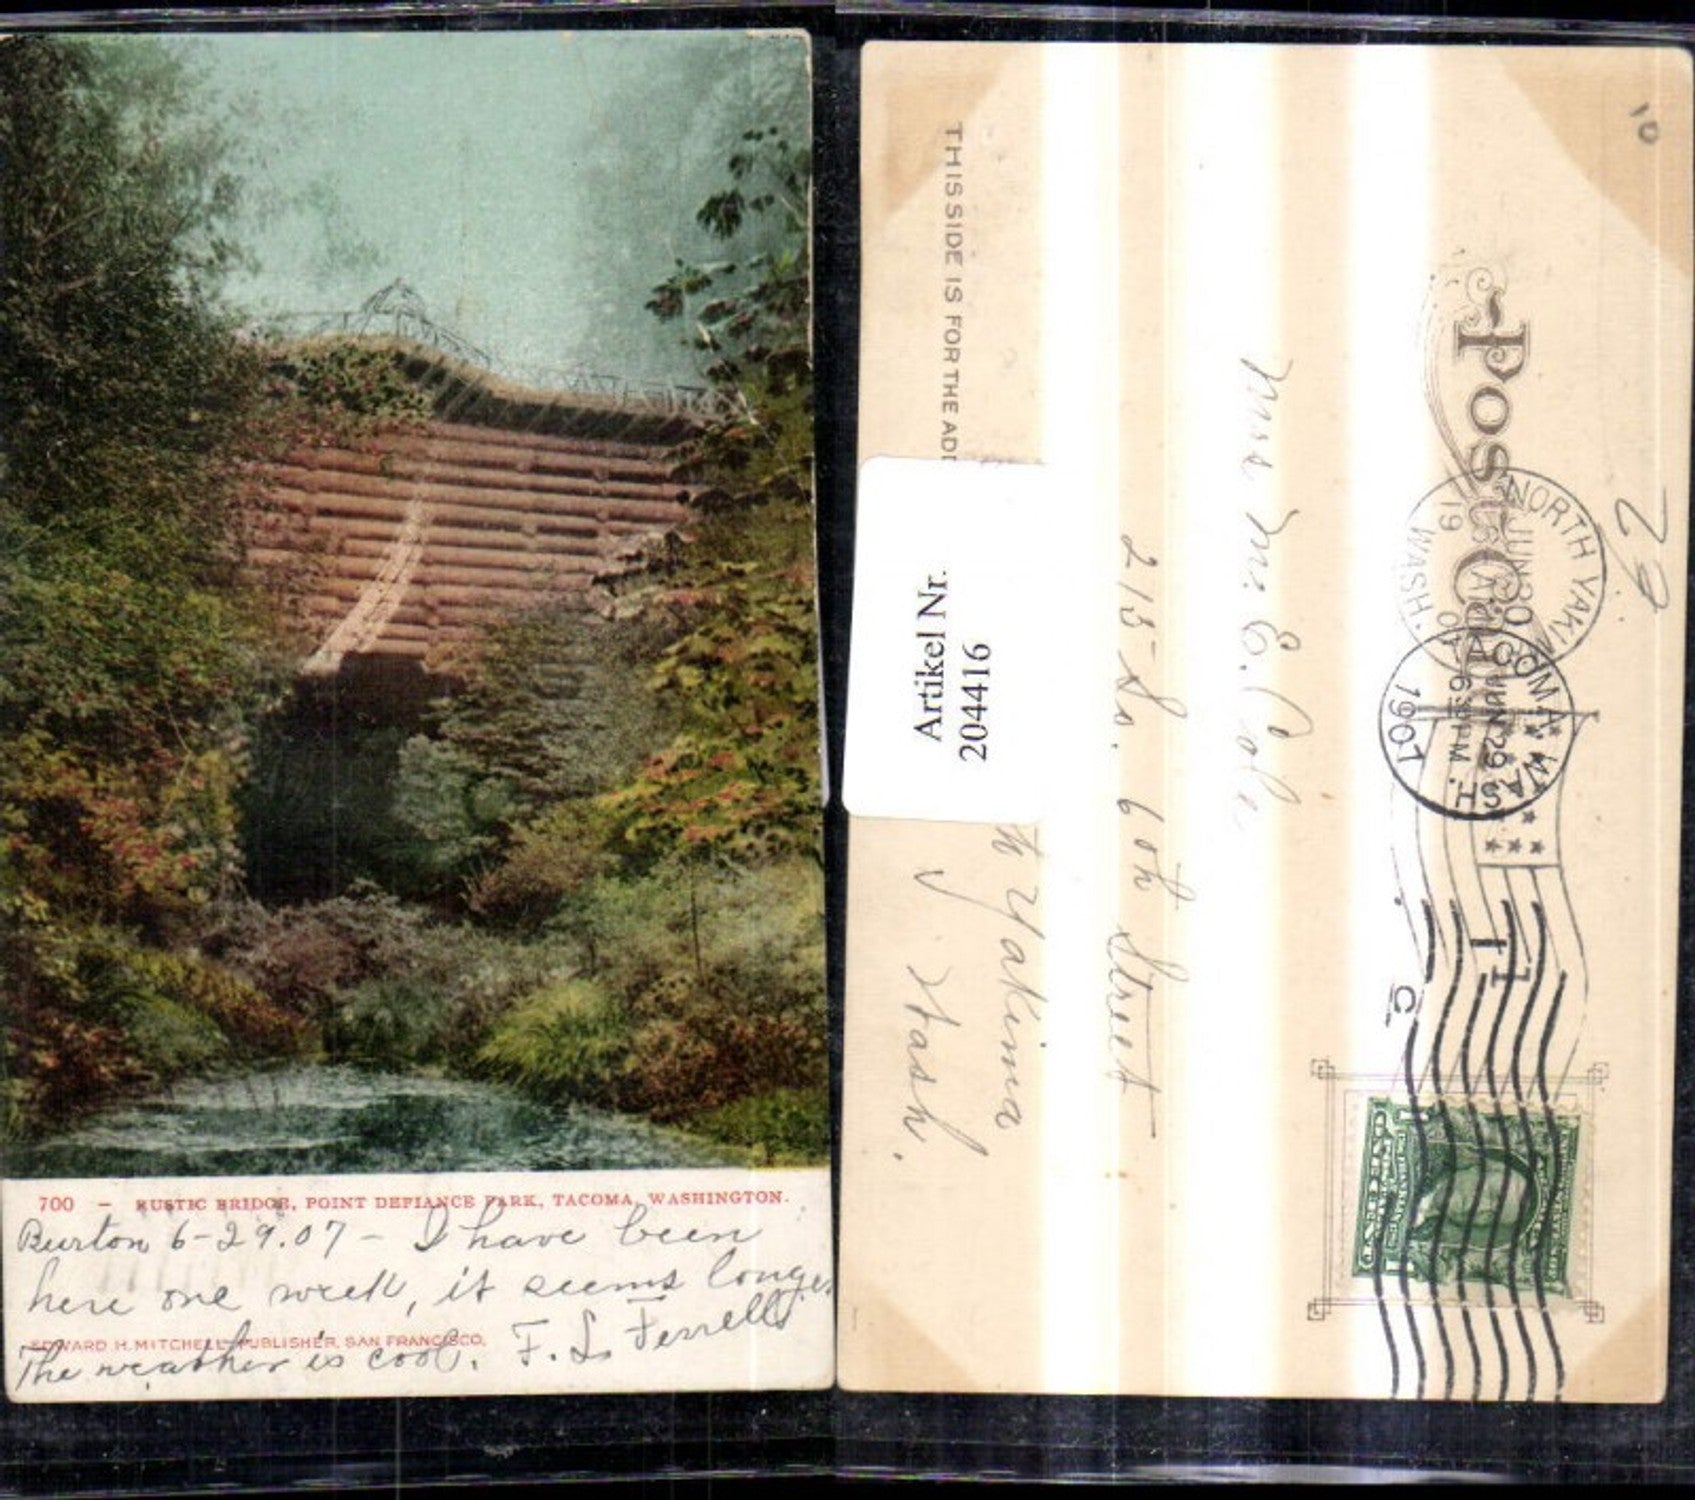 700 - RUSTIC BRIDGE, POINT DEFIANCE PARK, TACOMA, WASHINGTON.
Burton 6-29.07 - I have been
here one week, it seems longer.
EDWARD H. MITCHELL, PUBLISHER, SAN FRANCISCO.
The weather is cool. F. L. Ferrell
10
29
POST CARD
NORTH YAKI
JUN 30
19 07
WASH.
TACOMA WASH.
JUN 29
630 PM
1907
Mrs M. E. Cole
215 So. 6th Street
th Yakima
Wash.
THIS SIDE IS FOR THE AD
Artikel Nr.
204416